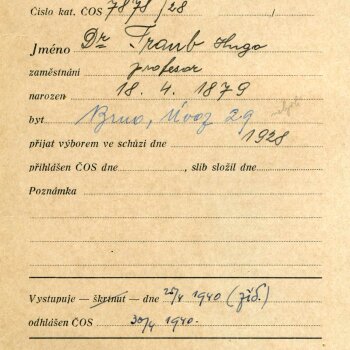 Číslo kat. ČOS 7878/28
Jméno Dr Traub Hugo
zaměstnání profesor
narozen 18. 4. 1879
byt Brno, Úvoz 29
přijat výborem ve schůzi dne 1928
přihlášen ČOS dne , slib složil dne
Poznámka
Vystupuje — škrtnut — dne 25/4 1940 (žid.)
odhlášen ČOS 30/4 1940.